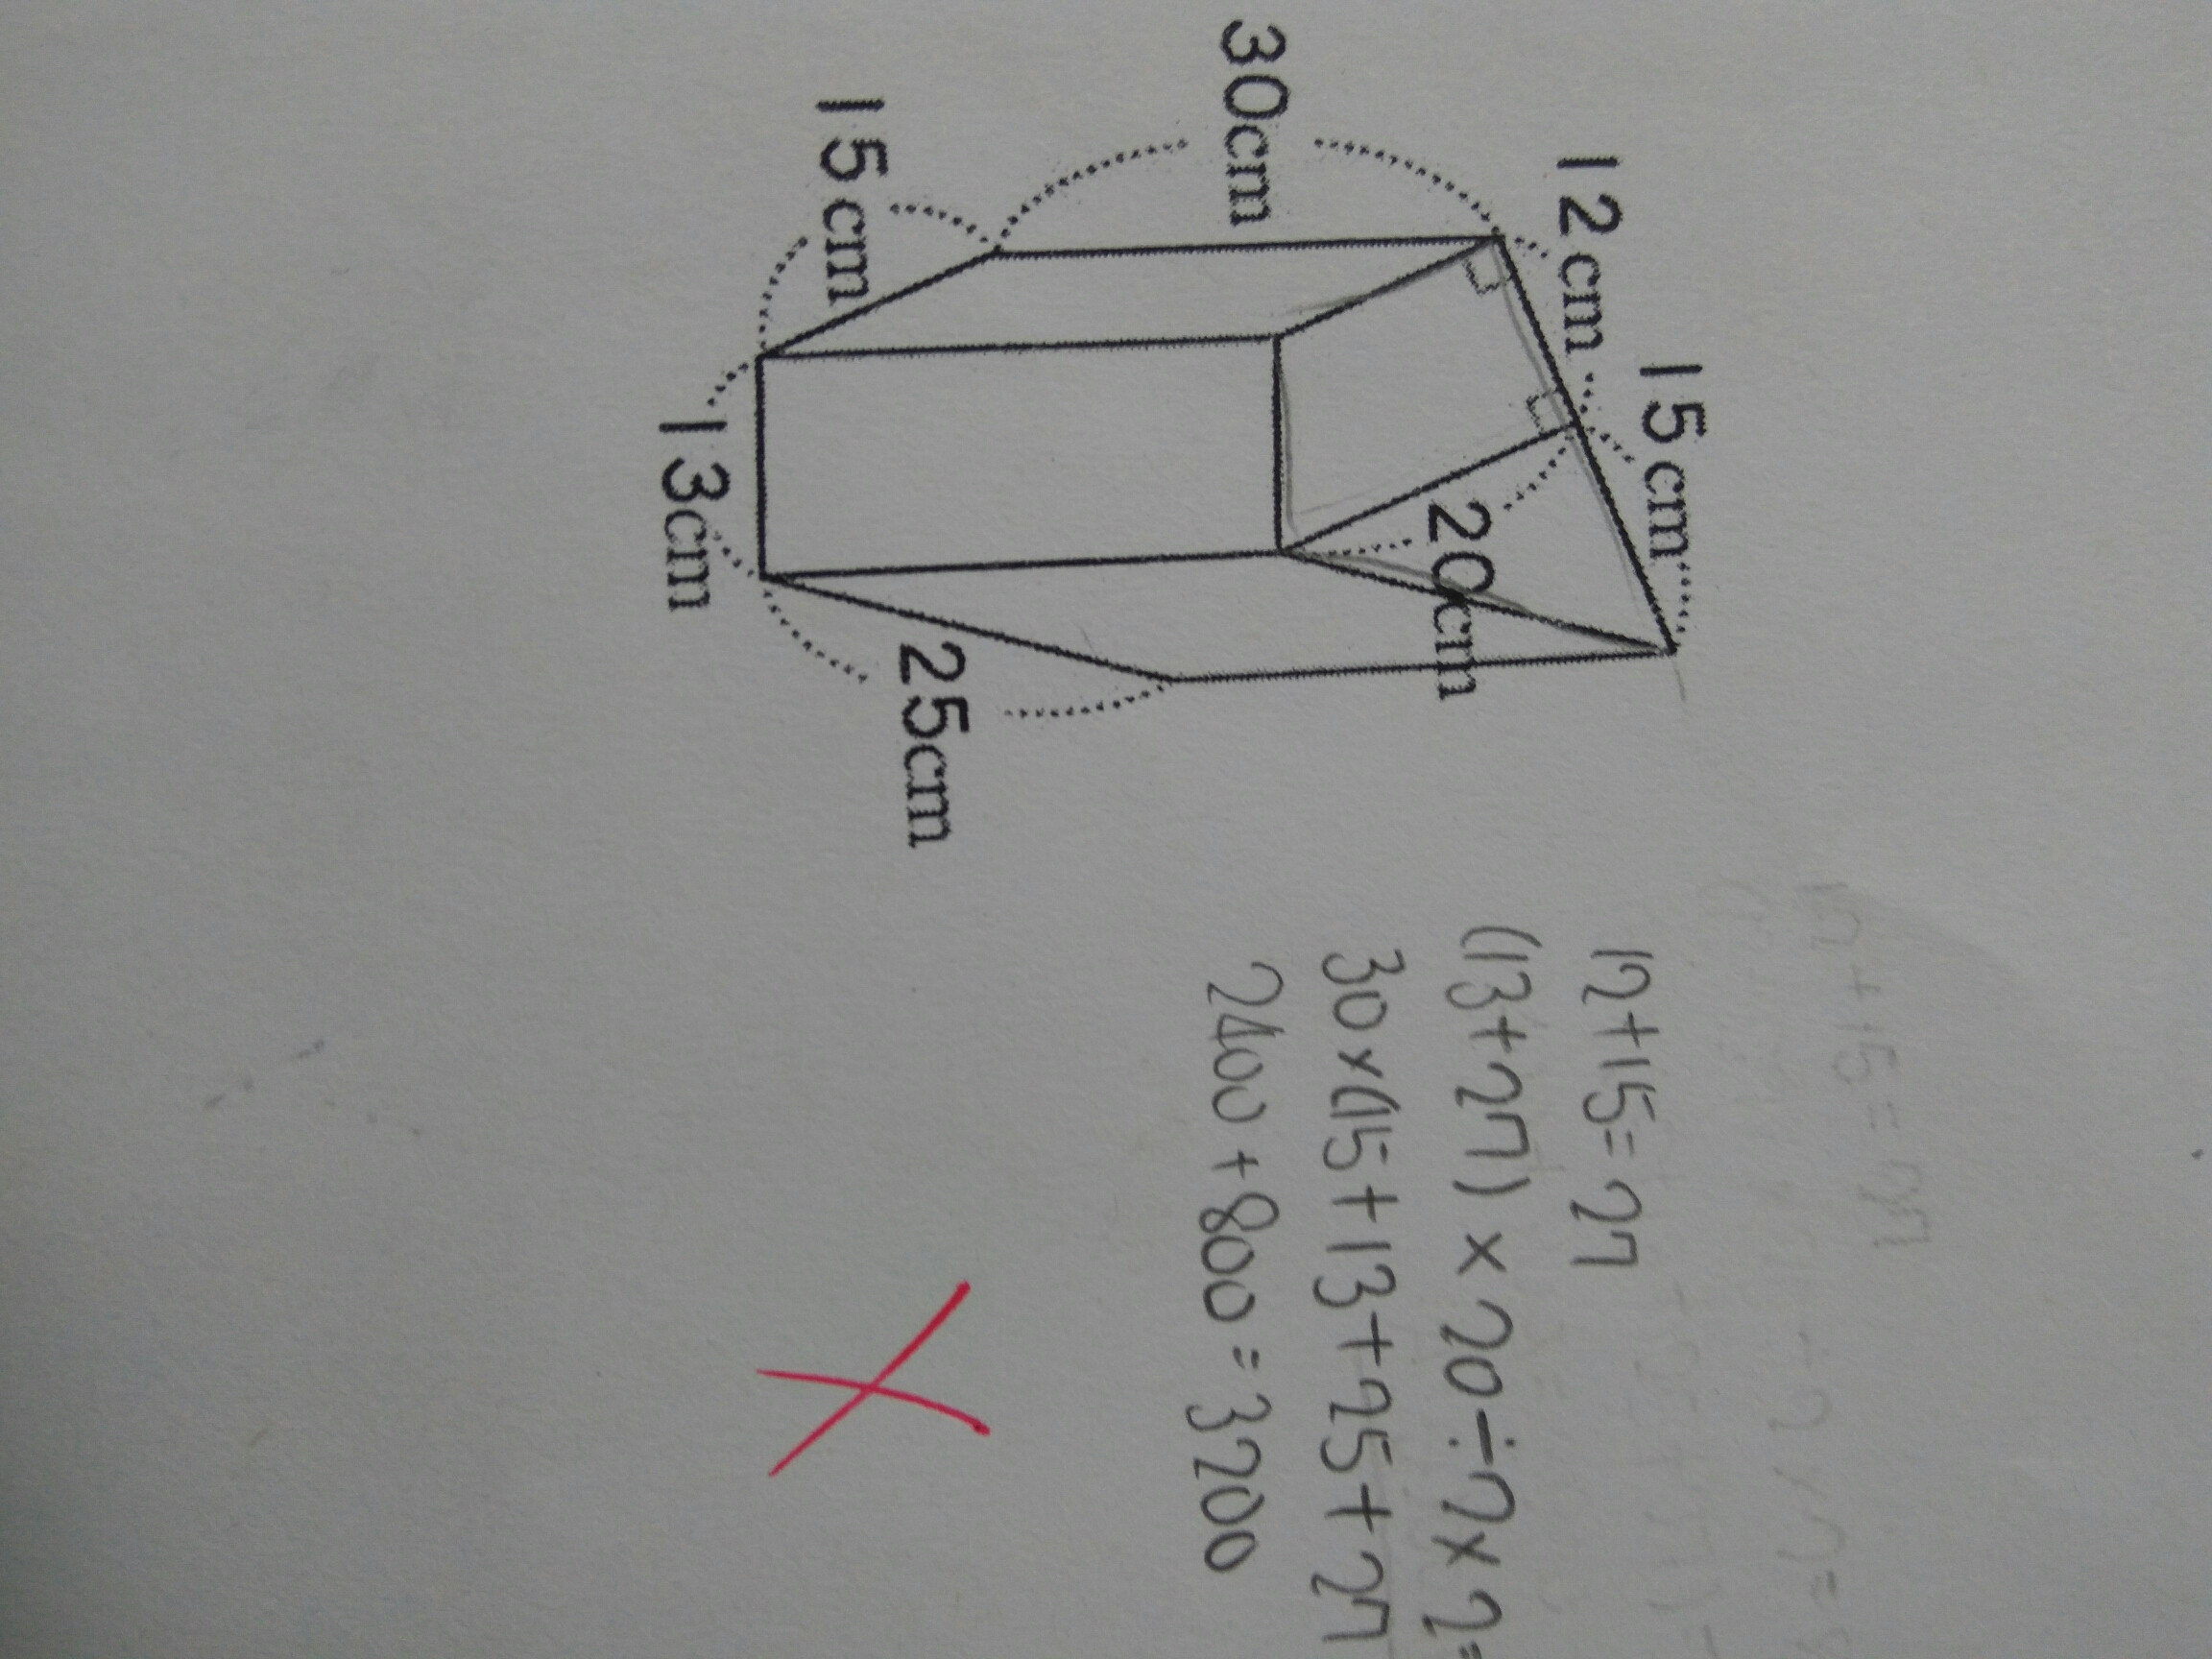 12cm
15cm
30cm
20cm
15cm
13cm
25cm
12+15=27
(13+27)×20÷2×2=
30×(15+13+25+27
2400+800=3200